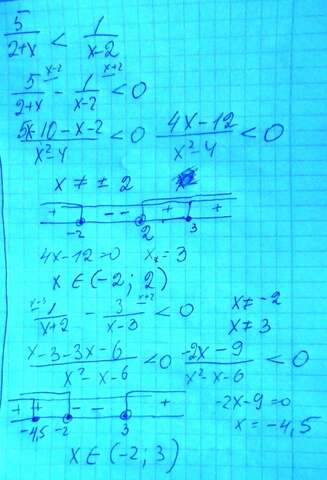 5/(2+x) < 1/(x-2)
5/(2+x) ^(x-2) - 1/(x-2) ^(x+2) < 0
(5x-10-x-2)/(x²-4) < 0 (4x-12)/(x²-4) < 0
x ≠ ± 2
+ - - + +
-2 2 3
4x-12=0 x = 3
x ∈ (-2; 2)
^(x-3) 1/(x+2) - 3/(x-3) ^(x+2) < 0 x ≠ -2
x ≠ 3
(x-3-3x-6)/(x²-x-6) < 0 (-2x-9)/(x²-x-6) < 0
-2x-9=0
+ + - - +
-4,5 -2 3
x = -4,5
x ∈ (-2; 3)